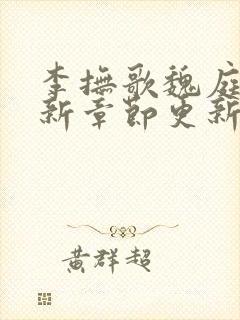 李撫歌魏庭
新章節更新
黃群超